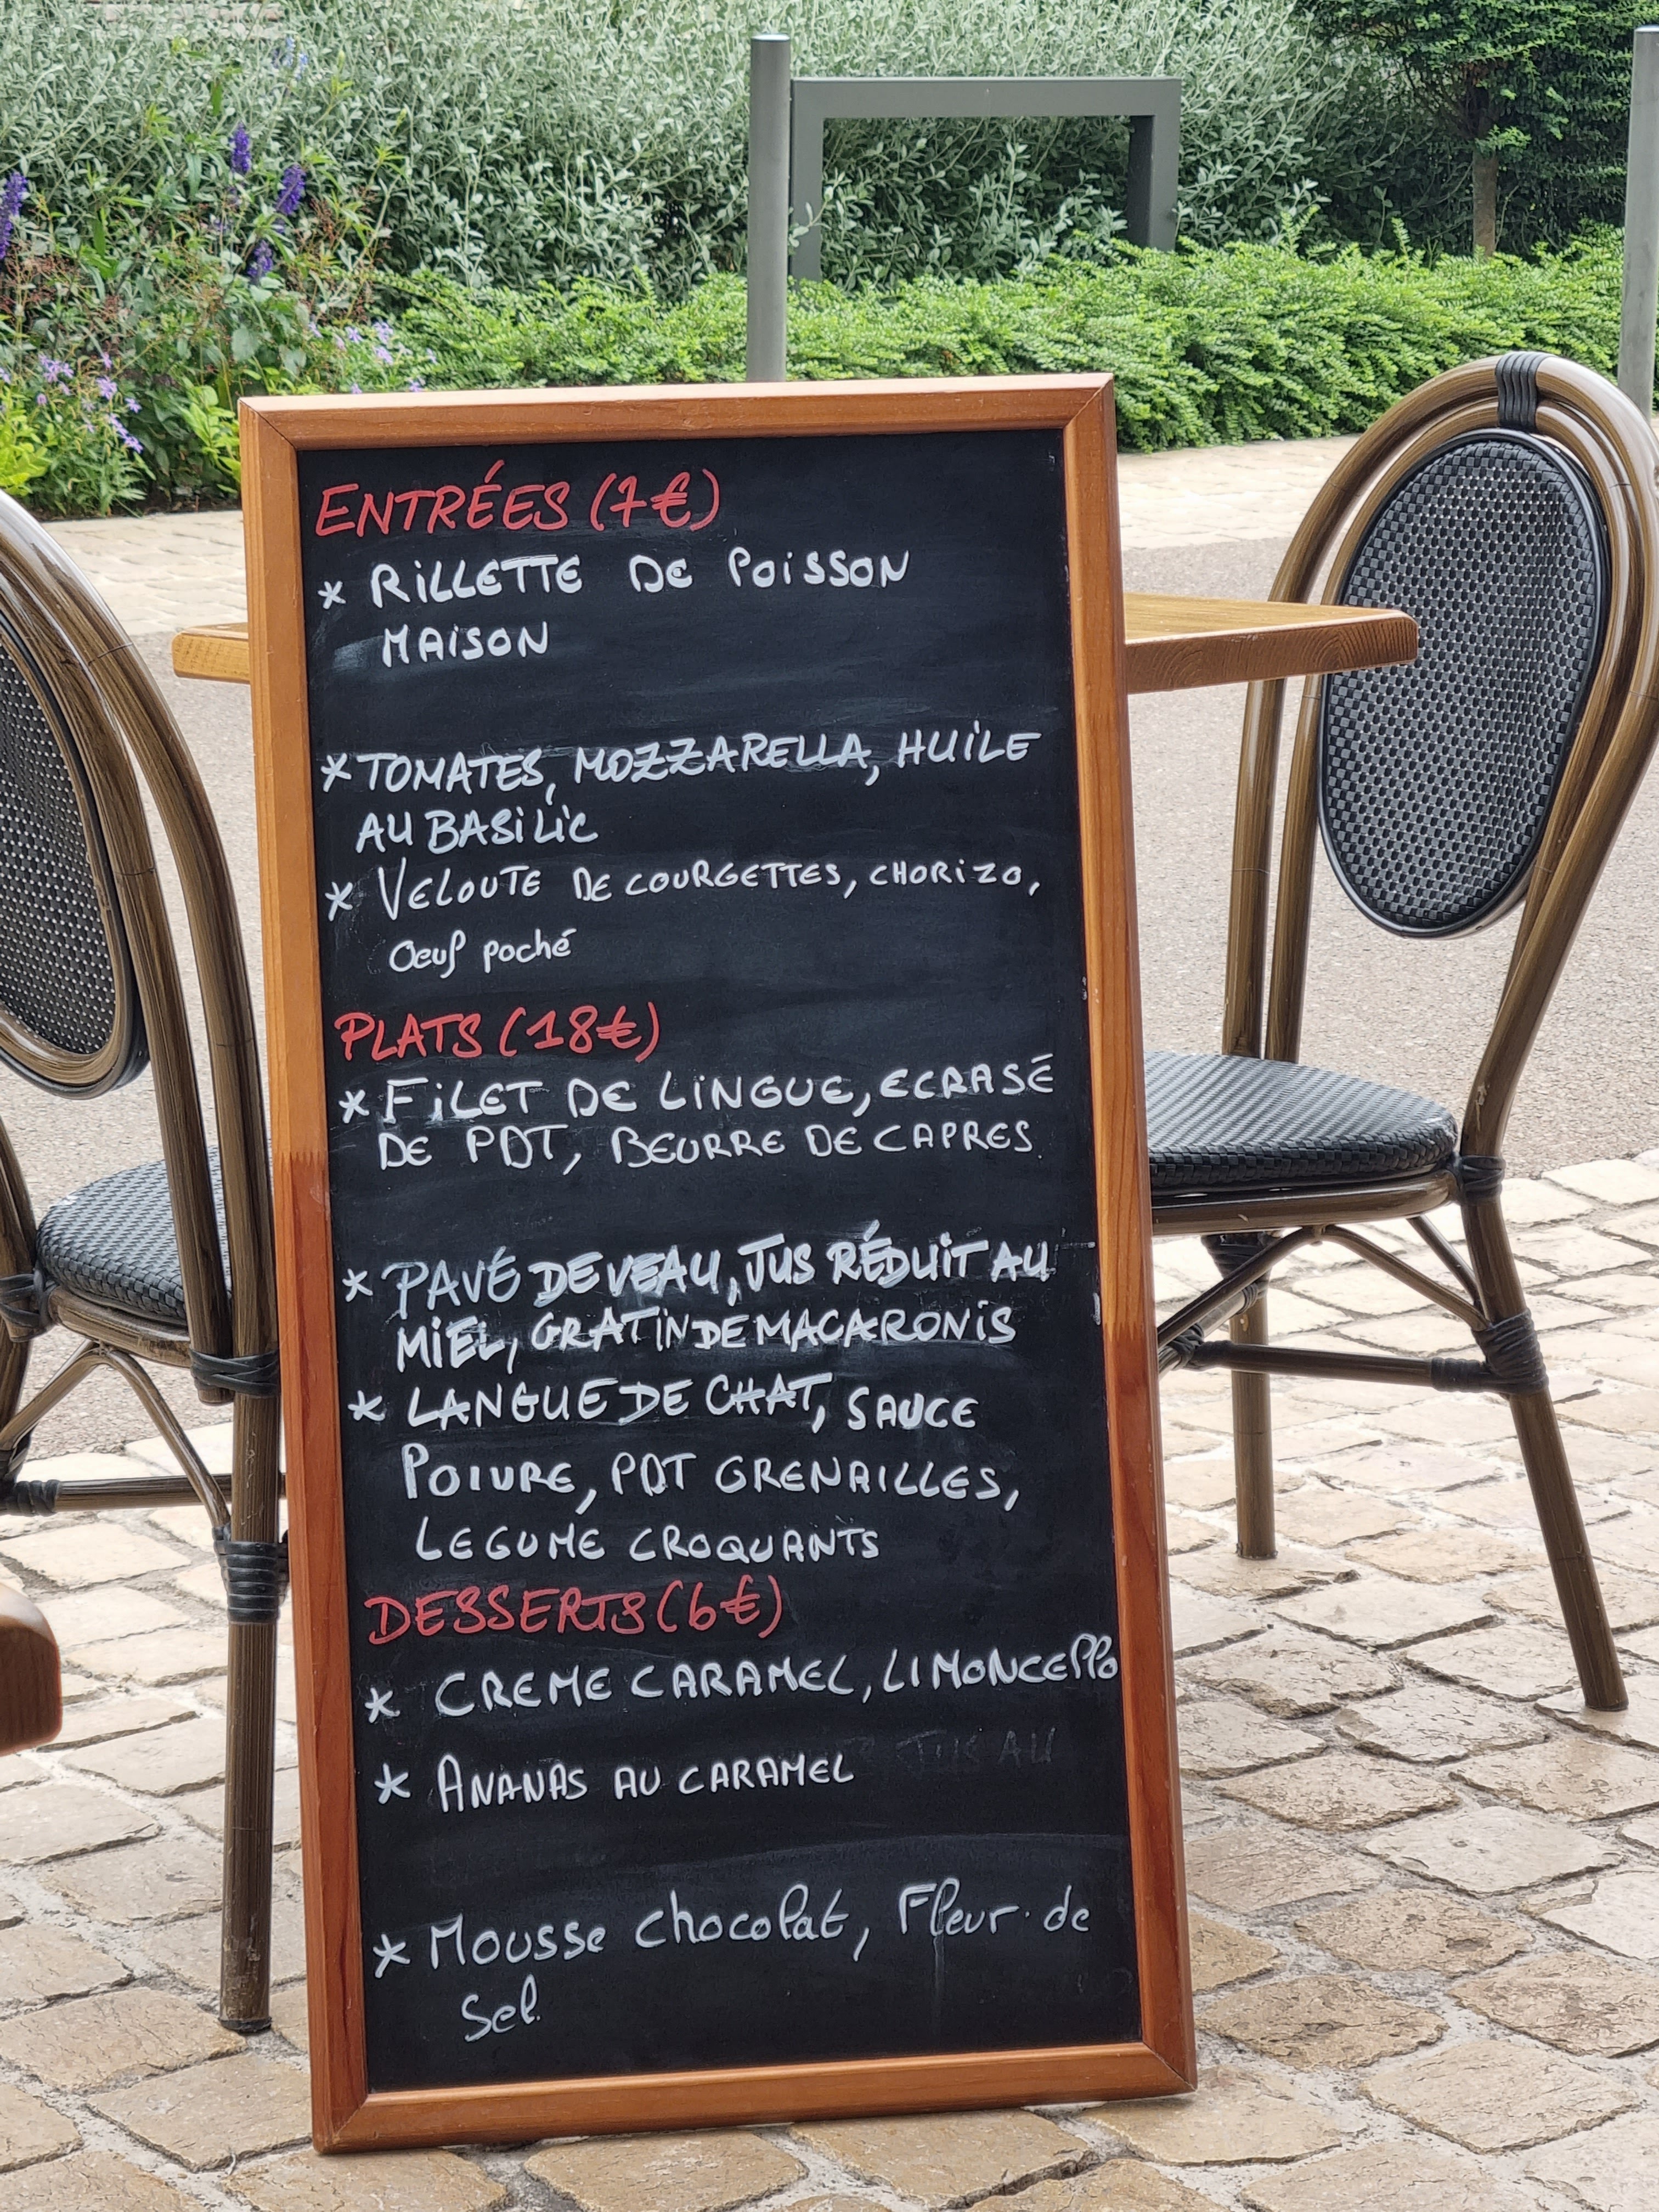 ENTRÉES (7€)
* RILLETTE DE POISSON
MAISON
* TOMATES, MOZZARELLA, HUILE
AU BASILIC
* VELOUTE DE COURGETTES, CHORIZO,
Oeuf poché
PLATS (18€)
* FILET DE LINGUE, ECRASÉ
DE PDT, BEURRE DE CAPRES.
* PAVÉ DE VEAU, JUS RÉDUIT AU
MIEL, GRATIN DE MACARONIS
* LANGUE DE CHAT, SAUCE
POIVRE, PDT GRENAILLES,
LEGUME CROQUANTS
DESSERTS (6€)
* CREME CARAMEL, LIMONCELLO
* ANANAS AU CARAMEL JUS AU
* Mousse chocolat, Fleur de
Sel.